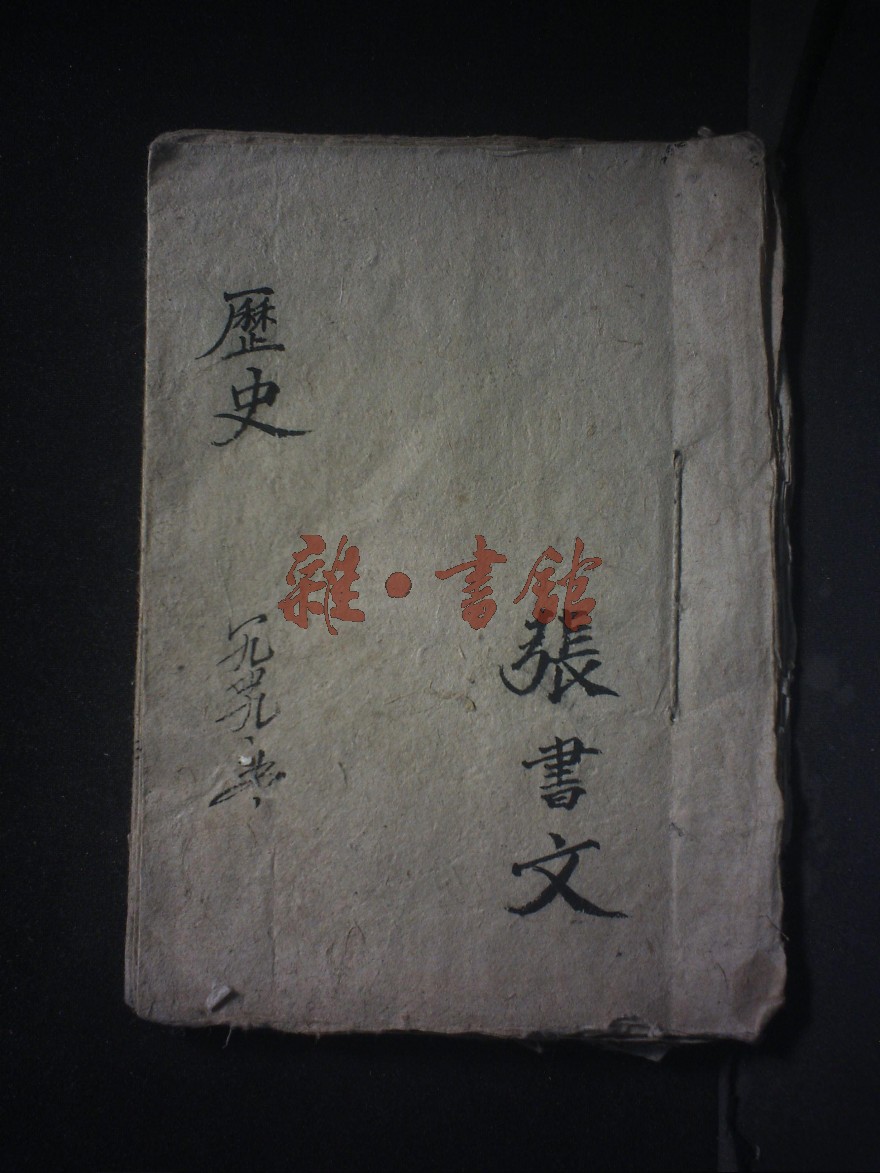 張書文
歷史
一九四九、
雜·書館